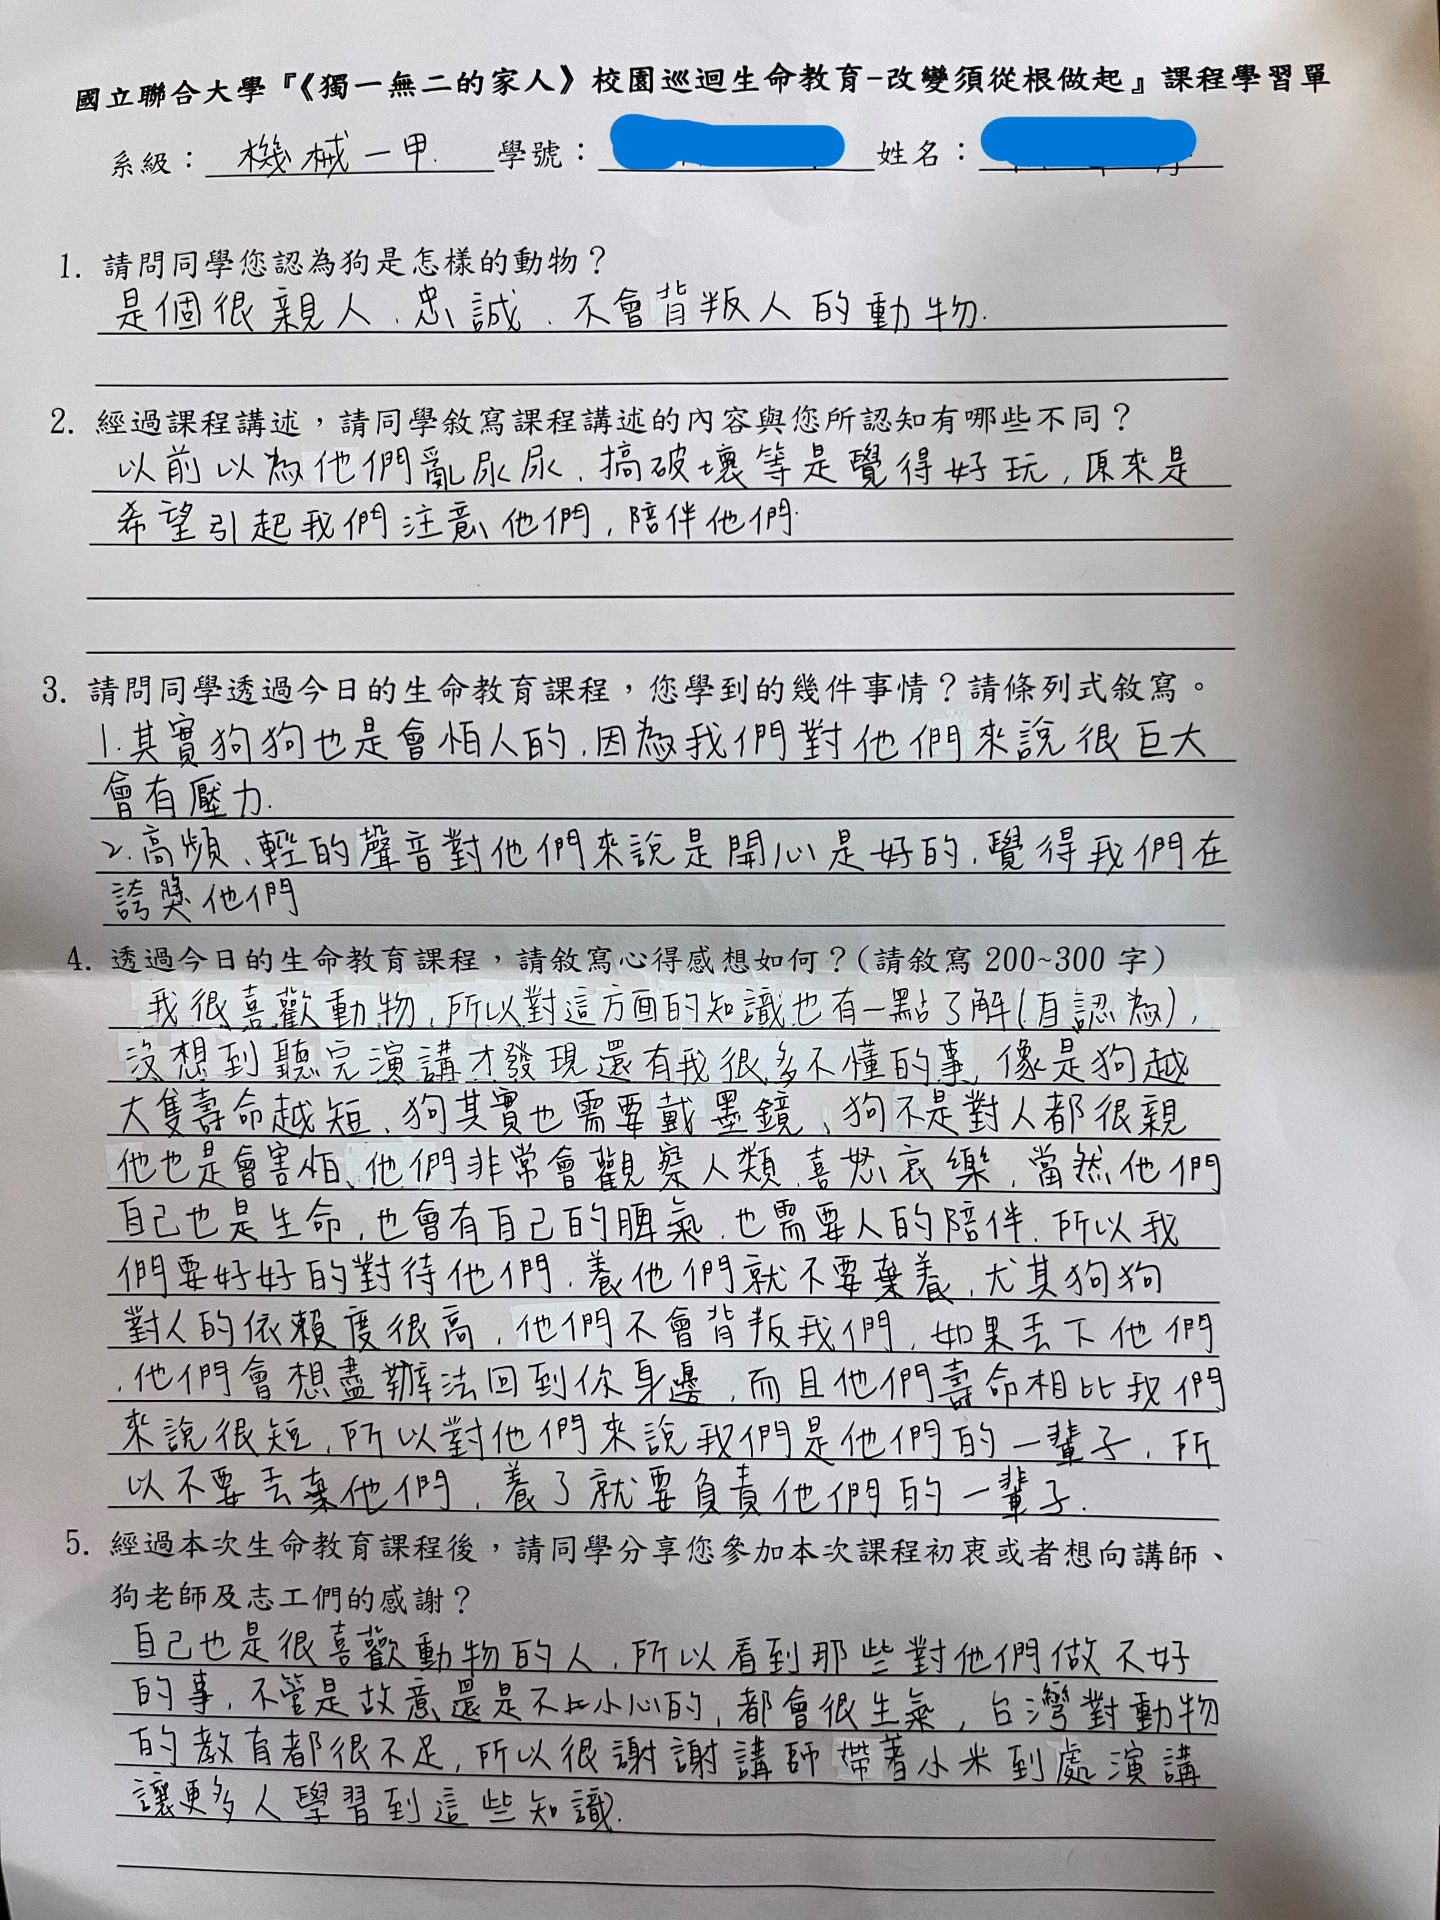 國立聯合大學『《獨一無二的家人》校園巡迴生命教育-改變須從根做起』課程學習單
系級：機械一甲. 學號： 姓名：
1. 請問同學您認為狗是怎樣的動物？
是個很親人、忠誠、不會背叛人的動物.
2. 經過課程講述，請同學敘寫課程講述的內容與您所認知有哪些不同？
以前以為他們亂尿尿、搞破壞等是覺得好玩，原來是
希望引起我們注意他們，陪伴他們.
3. 請問同學透過今日的生命教育課程，您學到的幾件事情？請條列式敘寫。
1.其實狗狗也是會怕人的，因為我們對他們來說很巨大
會有壓力.
2.高頻、輕的聲音對他們來說是開心是好的，覺得我們在
誇獎他們
4. 透過今日的生命教育課程，請敘寫心得感想如何？(請敘寫 200~300 字)
我很喜歡動物，所以對這方面的知識也有一點了解(自認為)，
沒想到聽完演講才發現還有我很多不懂的事，像是狗越
大隻壽命越短、狗其實也需要戴墨鏡、狗不是對人都很親
他也是會害怕、他們非常會觀察人類喜怒哀樂，當然他們
自己也是生命，也會有自己的脾氣，也需要人的陪伴，所以我
們要好好的對待他們，養他們就不要棄養，尤其狗狗
對人的依賴度很高，他們不會背叛我們，如果丟下他們
，他們會想盡辦法回到你身邊，而且他們壽命相比我們
來說很短，所以對他們來說我們是他們的一輩子，所
以不要丟棄他們，養了就要負責他們的一輩子.
5. 經過本次生命教育課程後，請同學分享您參加本次課程初衷或者想向講師、
狗老師及志工們的感謝？
自己也是很喜歡動物的人，所以看到那些對他們做不好
的事，不管是故意還是不小心的，都會很生氣，台灣對動物
的教育都很不足，所以很謝謝講師帶著小米到處演講
讓更多人學習到這些知識.